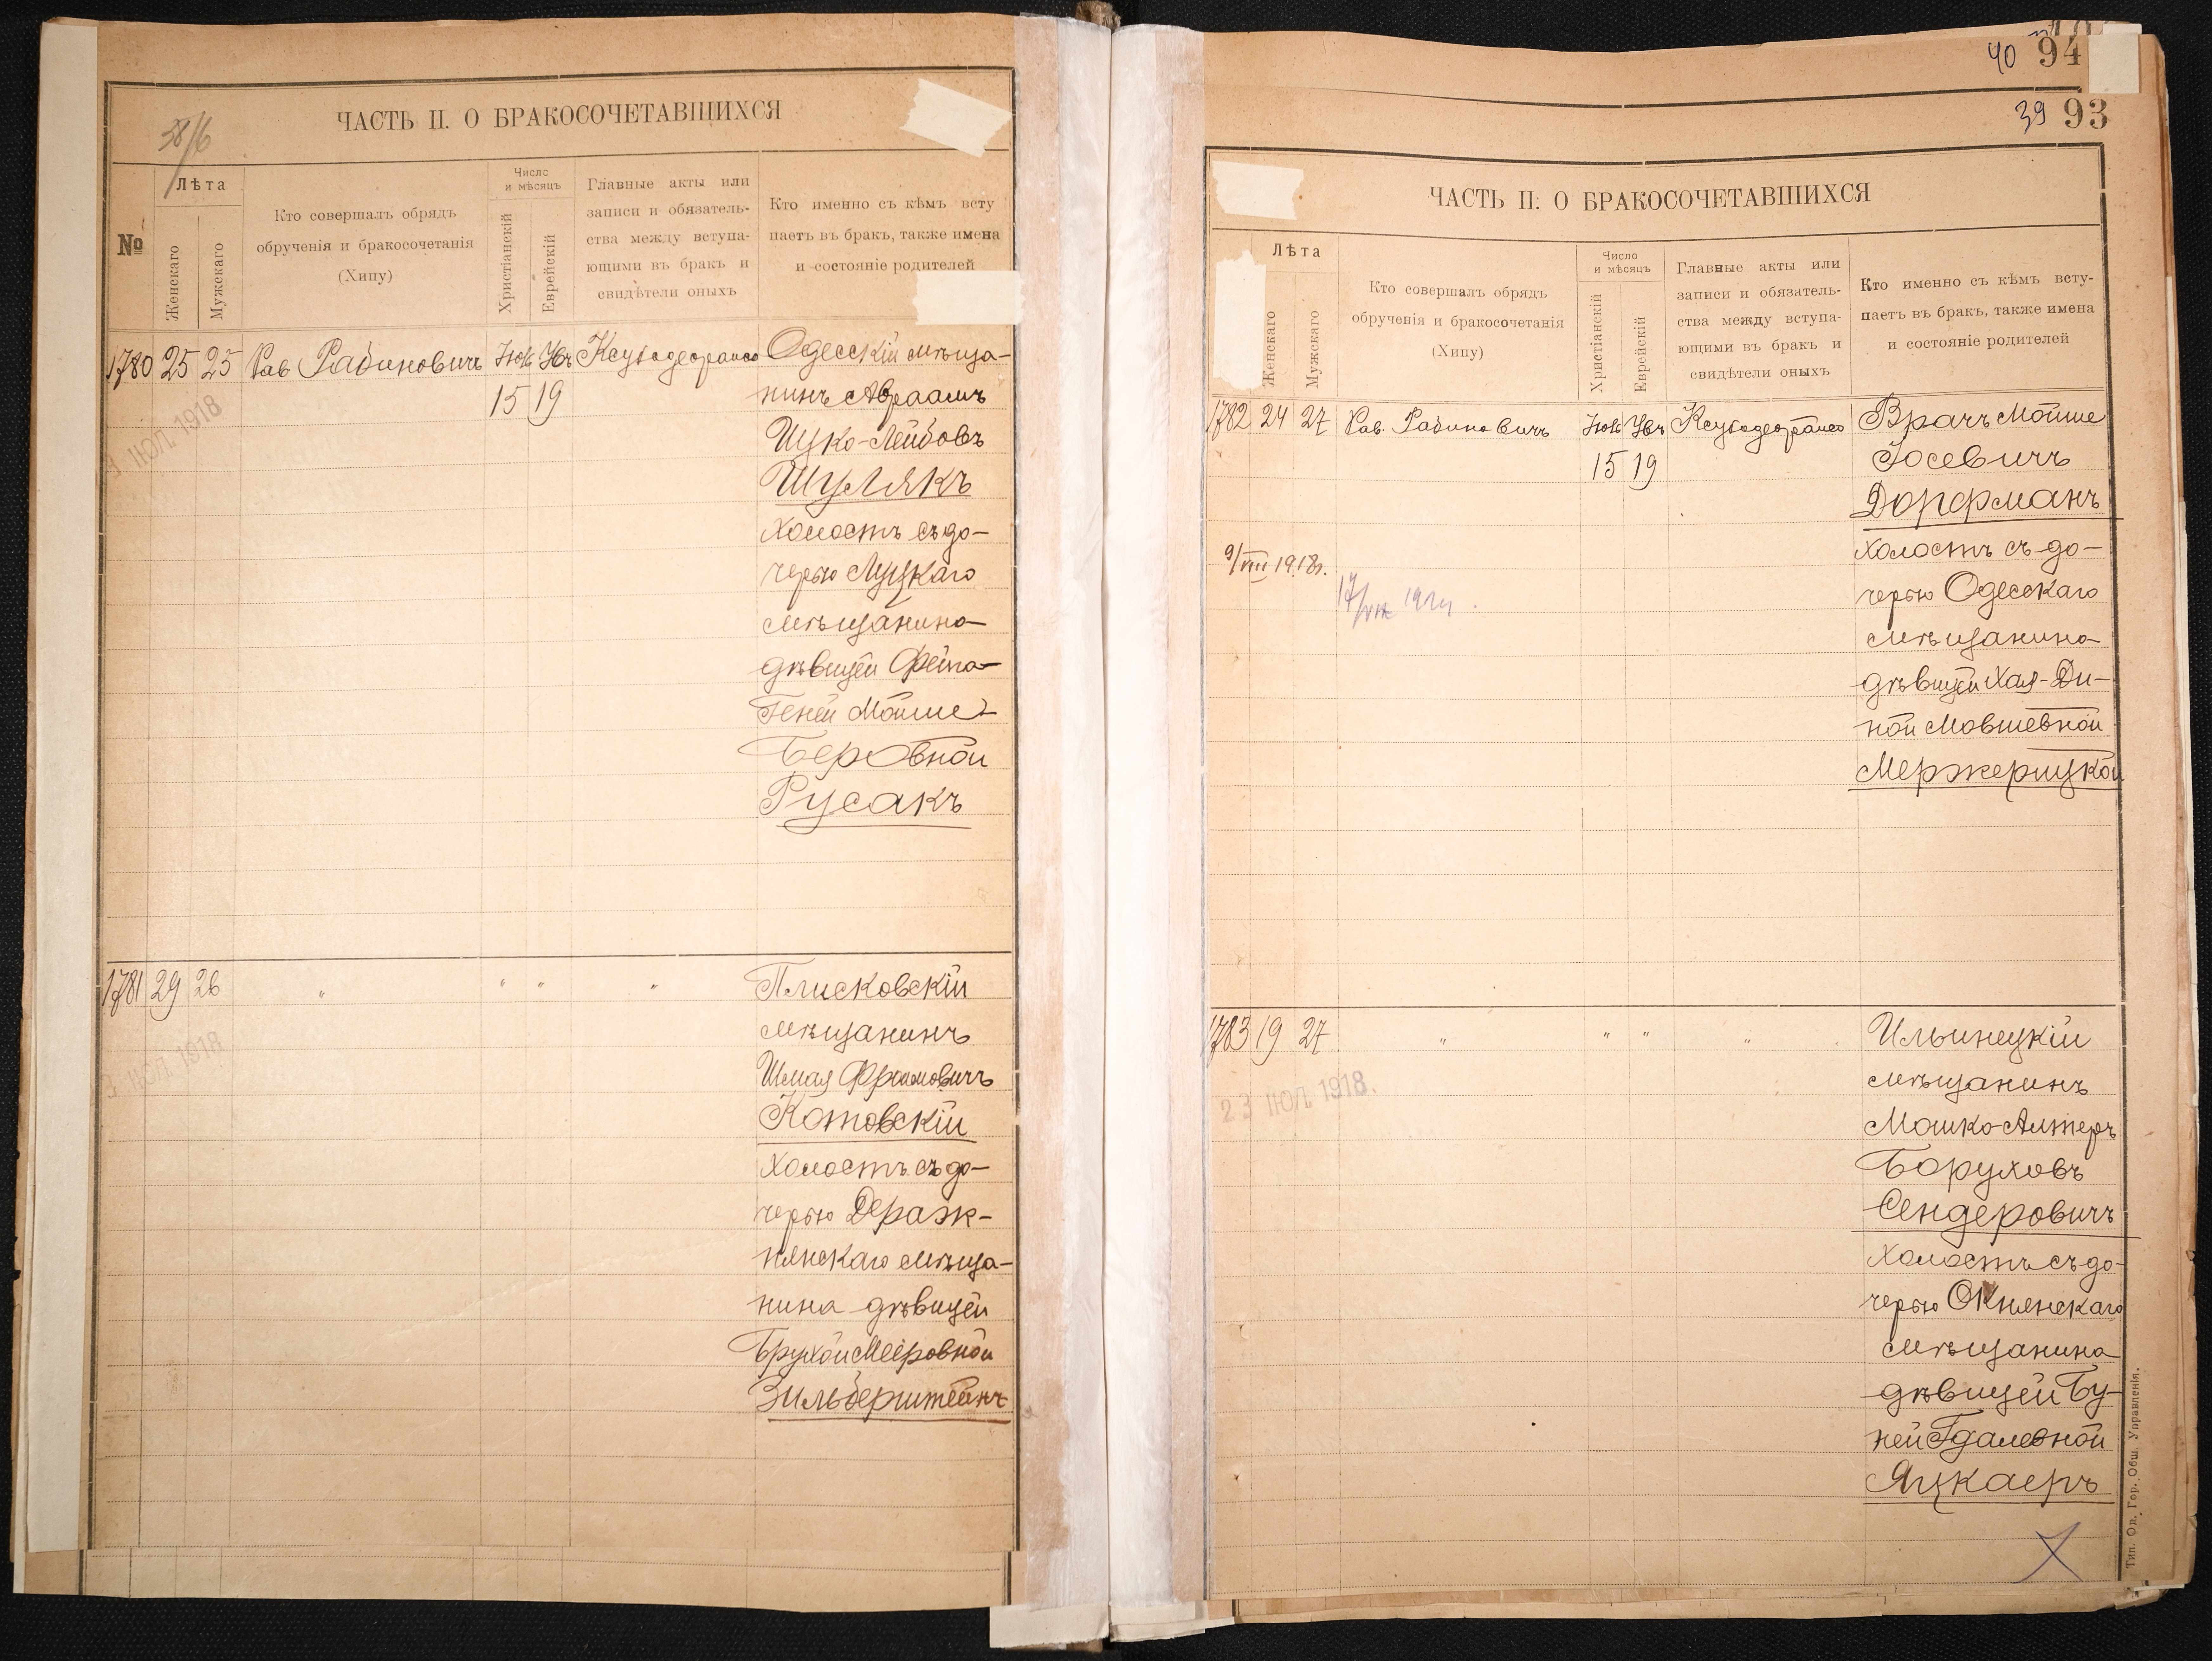 38/6
ЧАСТЬ II. О БРАКОСОЧЕТАВШИХСЯ
№
Лѣта
Женскаго
Мужескаго
Кто совершалъ обрядъ
обрученія и бракосочетанія
(Хипу)
Число
и мѣсяцъ
Христіанскій
Еврейскій
Главные акты или
записи и обязатель-
ства между вступа-
ющими въ бракъ и
свидѣтели оныхъ
Кто именно съ кѣмъ всту
паетъ въ бракъ, также имена
и состояніе родителей
1780 25 25 Рав Рабиновичъ
15 19
Одесскій мѣща-
нинъ Авраамъ
Ицко-Лейбовъ
Шулякъ
холостъ съ до-
черью Луцкаго
мѣщанина
дѣвицей Фейга-
Геней Мойше-
Беровной
Русакъ
ІЮЛ 1918
1781 29 26 " " " "
Плисковскій
мѣщанинъ
Шмая Фроимовичъ
Котовскій
холостъ съ до-
черью Дераж-
нянскаго мѣща-
нина дѣвицей
Брухой Меировной
Зильберштейнъ
ІЮЛ 1918
40 94
39 93
ЧАСТЬ II: О БРАКОСОЧЕТАВШИХСЯ
Лѣта
Женскаго
Мужескаго
Кто совершалъ обрядъ
обрученія и бракосочетанія
(Хипу)
Число
и мѣсяцъ
Христіанскій
Еврейскій
Главные акты или
записи и обязатель-
ства между вступа-
ющими въ бракъ и
свидѣтели оныхъ
Кто именно съ кѣмъ всту-
паетъ въ бракъ, также имена
и состояніе родителей
1782 24 27 Рав. Рабиновичъ
15 19
Врачъ Мойше
Іосевичъ
Дорфманъ
холостъ съ до-
черью Одесскаго
мѣщанина
дѣвицей Хая-Ди-
ной Мовшевной
Мержерицкой
9/VIII 1918г.
1783 19 27 " " " "
Ильинецкій
мѣщанинъ
Мошко-Алтеръ
Боруховъ
Сендеровичъ
холостъ съ до-
черью Окнянскаго
мѣщанина
дѣвицей Бу-
ней Гдалевной
Яцкаеръ
23 ІЮЛ 1918.
Тип. Од. Гор. Общ. Управленія.